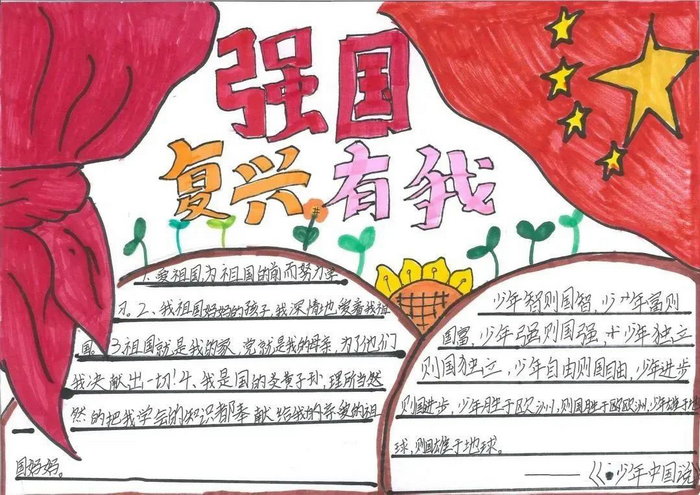 强国
复兴有我
1.爱祖国,为祖国的前而努力学
习。2、我祖国好好的孩子,我深情地爱着我祖
国。3祖国就是我的家,党就是我的母亲,为了他们
我决献出一切!4、我是国的炎黄子孙,理所当然
然的把我学会的知识都奉献给我的亲爱的祖
国妈妈。
少年智则国智,少年富则
国富,少年强则国强,少年独立
则国独立,少年自由则国自由,少年进步
则国进步,少年胜于欧洲,则国胜于欧欧洲,少年雄于地
球,则国雄于地球。
——《少年中国说